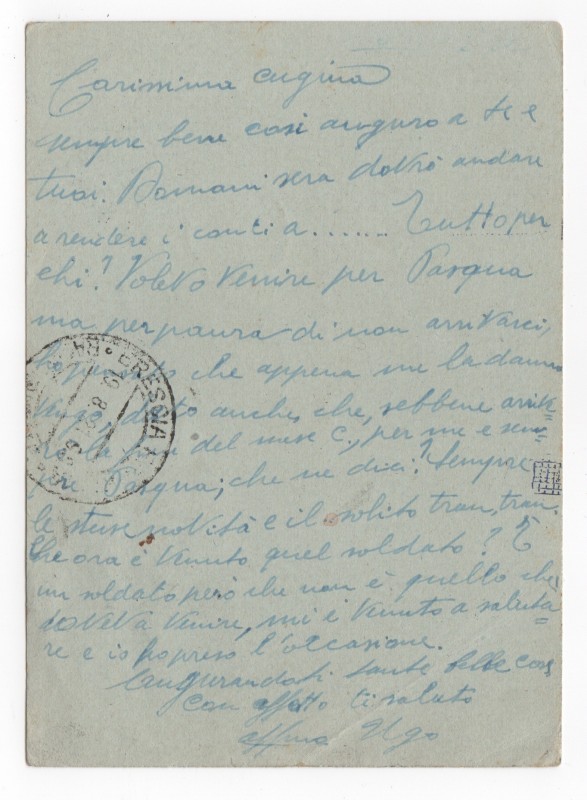 Carissima cugina
sempre bene così auguro a te e
tuoi. Domani sera dovrò andare
a rendere i conti a ....... Tutto per
chi? Volevo venire per Pasqua
ma per paura di non arrivarci,
ho che appena me la danno
vengo, dato anche, che, sebbene
la fine del mese c., per me è sem=
pre Pasqua; che ne dici? Sempre
le stesse novità e il solito tran, tran.
Che ora è venuto quel soldato? È
un soldato però che non è quello che
doveva venire, mi è venuto a saluta=
re e io ho preso l'occasione.
Augurandoti tante belle cose
con affetto ti saluto
affmo Ugo
BRESCIA